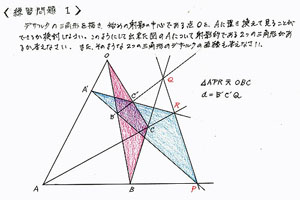 〈練習問題 1〉
デザルグの三角形を描き、始めの射影の中心である点Oを、Aに置き換えて見ることが
できるか検討しなさい。このようにして出来た図のAについて射影的である2つの三角形がある
か答えなさい。また、そのような2つの三角形のデザルグの直線も答えなさい。
O
Q
A'
C''
R
△A'PR ⊼ OBC
B'
C
d = B'C'Q
A
B
P